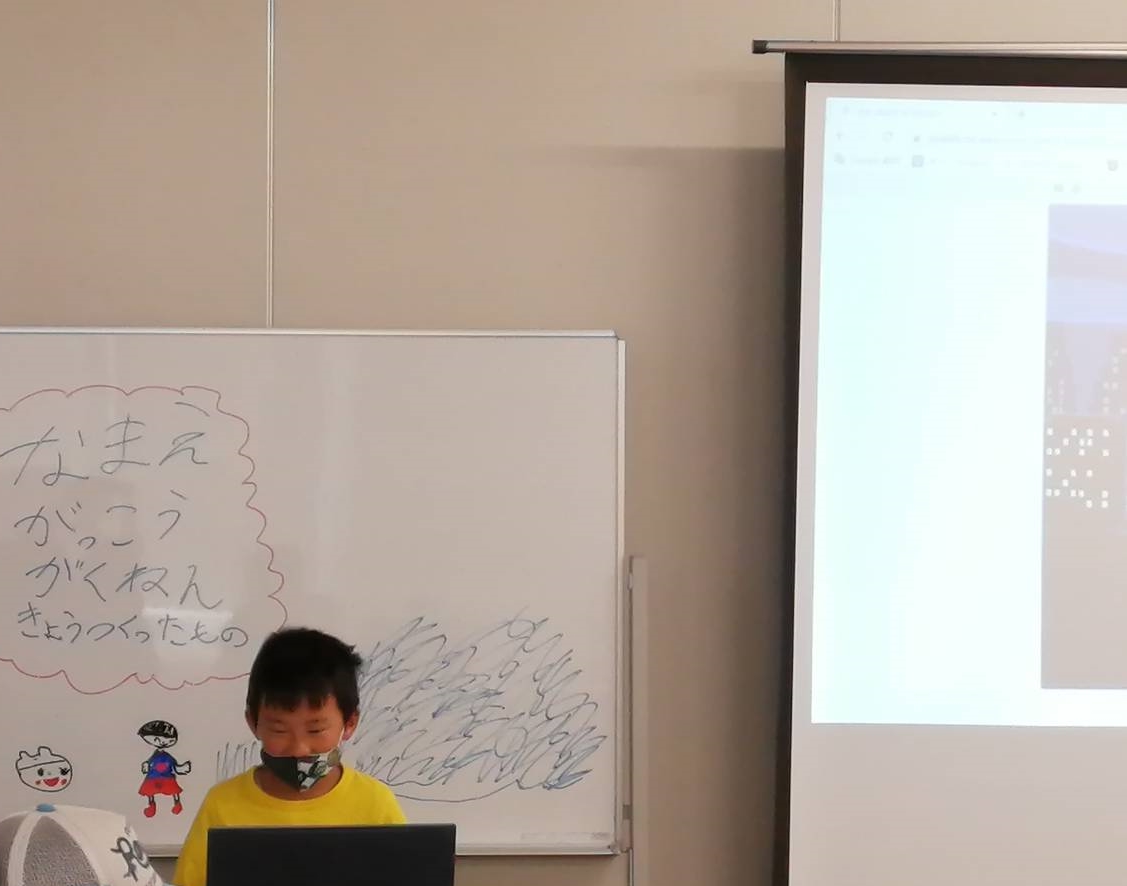 なまえ
がっこう
がくねん
きょうつくったもの